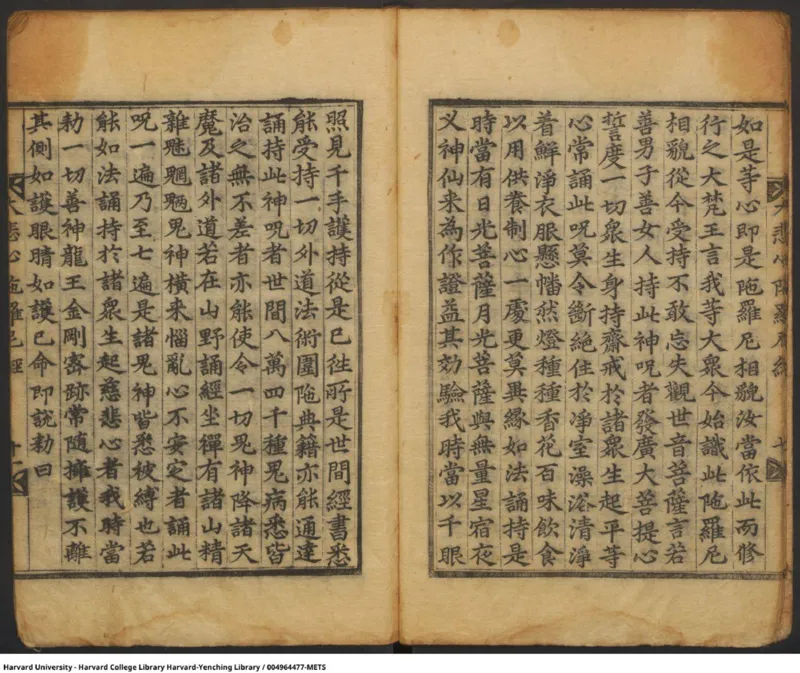 如是等心即是陁羅尼相貌汝當依此而修
行之大梵王言我等大衆今始識此陁羅尼
相貌從今受持不敢忘失觀世音菩薩言若
善男子善女人持此神呪者發廣大菩提心
誓度一切衆生身持齋戒於諸衆生起平等
心常誦此呪莫令斷絶住於淨室澡浴清淨
着鮮淨衣服懸幡然燈種種香花百味飲食
以用供養制心一處更莫異緣如法誦持是
時當有日光菩薩月光菩薩與無量星宿夜
义神仙来為作證益其効驗我時當以千眼
照見千手護持從是已徃所是世間經書悉
能受持一切外道法術圍陁典籍亦能通達
誦持此神呪者世間八萬四千種鬼病悉皆
治之無不差者亦能使令一切鬼神降諸天
魔及諸外道若在山野誦經坐禪有諸山精
雜魅魍魎鬼神橫来惱亂心不安定者誦此
呪一遍乃至七遍是諸鬼神皆悉被縛也若
能如法誦持於諸衆生起慈悲心者我時當
勑一切善神龍王金剛密跡常随擁護不離
其側如護眼睛如護已命即說勑曰
大悲心陁羅尼經 十一
Harvard University - Harvard College Library Harvard-Yenching Library / 004964477-METS